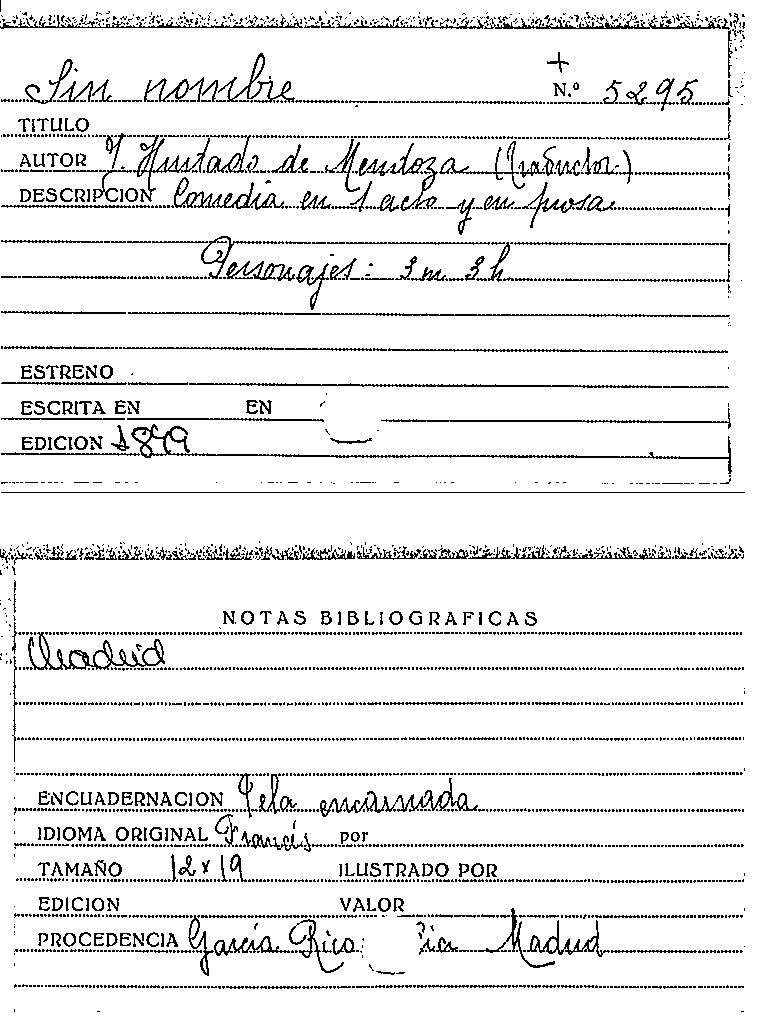 Sin nombre + N.º 5295
TITULO
AUTOR J. Hurtado de Mendoza (Traductor)
DESCRIPCION Comedia en 1 acto y en prosa
Personajes: 3 m 3 h
ESTRENO
ESCRITA EN EN
EDICION 1879
NOTAS BIBLIOGRAFICAS
Madrid
ENCUADERNACION Tela encarnada
IDIOMA ORIGINAL Francés por
TAMAÑO 12 x 19 ILUSTRADO POR
EDICION VALOR
PROCEDENCIA García Rico Madrid